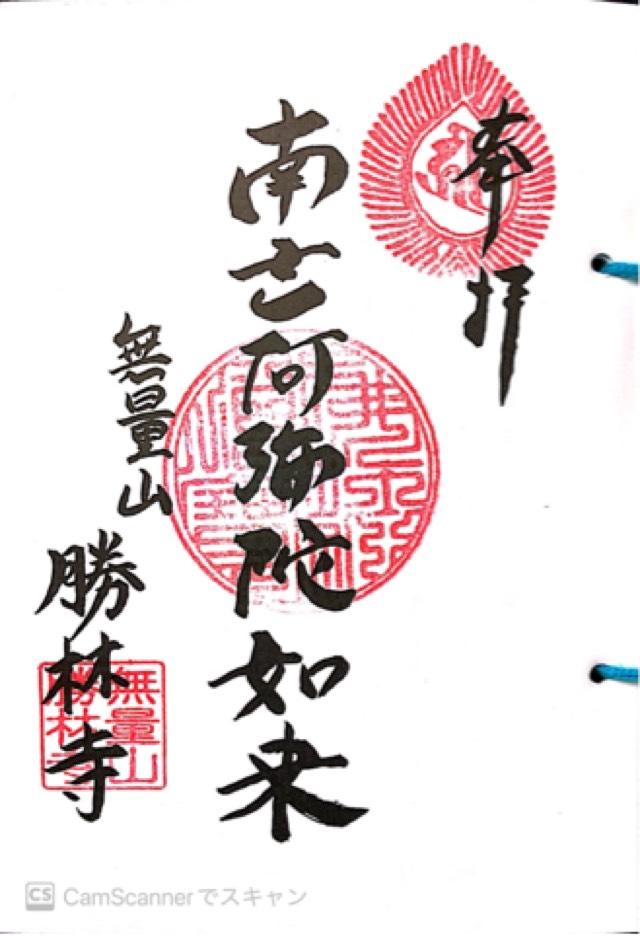 奉拝
南士阿弥陀如来
無量山
勝林寺
無量山
勝林寺
CS CamScannerでスキャン